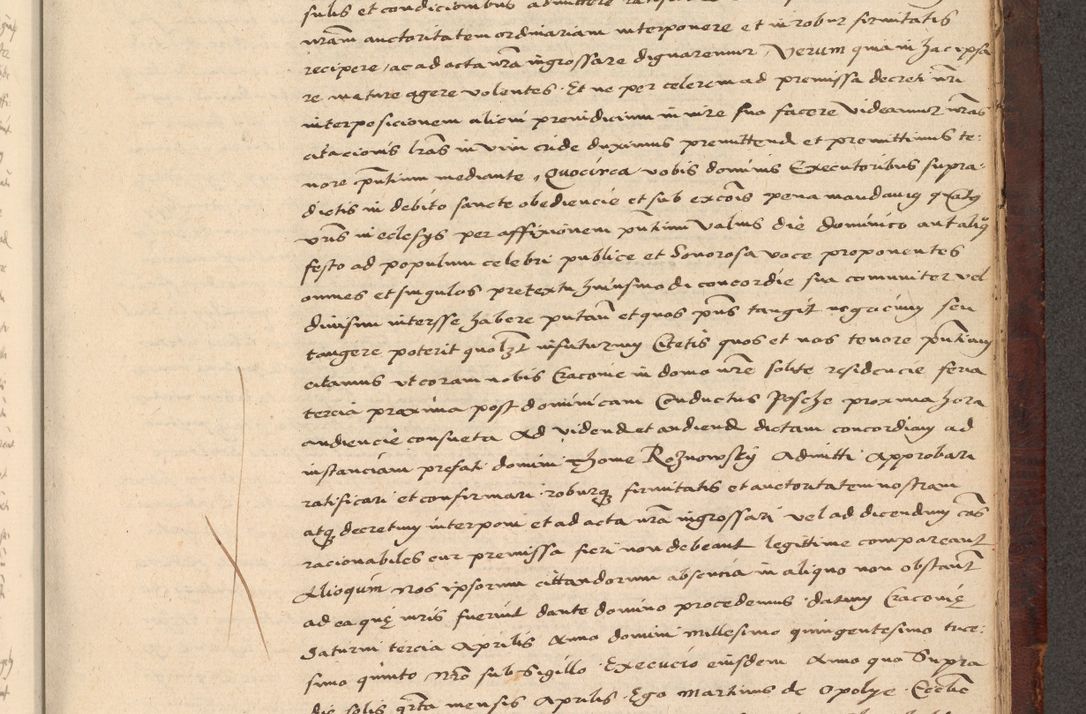 sulis et condicionibus admittere
nr̃am auctoritatem ordinariam interponere et in robur firmitatis
recipere, ac ad acta nr̃a ingrossare dignaremur, Verum quia in hac ipsa
re mature agere volentes. Et ne per celerem ad premissa decreti nr̃i
interposicionem alieni preiudicium in iure suo facere videamur nr̃as
citacionis lr̃as in vim eride duximus premittend et premittimus te:
nore pñtium mediante, Quocirca vobis dominis Executoribus supra:
dictis in debito sancte obediencie et sub excoĩs pena mandamus qtq
vr̃is in eclesys per affixionem pñtium valuis die dominico aut aliq̃
festo ad populum celebri publice et Sonorosa voce proponentes
omnes et singulos pretextu huiusmodi concordie sua comuniter vel
diuisim interesse habere putañ et quos pñs tangit negocium seu
tangere poterit quolz̃t infuturum Citetis quos et nos tenore pñtium
citamus vt coram nobis Cracovie in domo nr̃e solite residencie feria
tercia proxima post dominicam Conductus Pasche proxima hora
audiencie consueta Ad videnđ et audiend dictam concordiam ad
instanciam prefati domini Thome Roznowskij Admitti Approbari
ratificari et confirmari roburq firmitatis et auctoritatem nostram
atq decretum interponi et ad acta nr̃a ingrossari vel ad dicendum cãs
racionabiles cur premissa fieri non debeant legittime compareant
Alioquin nos ipsorum cittandorum absencia in aliquo non obstañt
ad ea quę iuris fuerint dante domino procedemus. datum Cracovię
Saturni tercia Aprilis Anno domini Millesimo quingentesimo trice:
simo quinto Nr̃o sub sigillo. Execucio eiusdem Anno quo Supra
die solis qr̃ta mensis Aprilis. Ego Martinus de Opolye. Ecctie